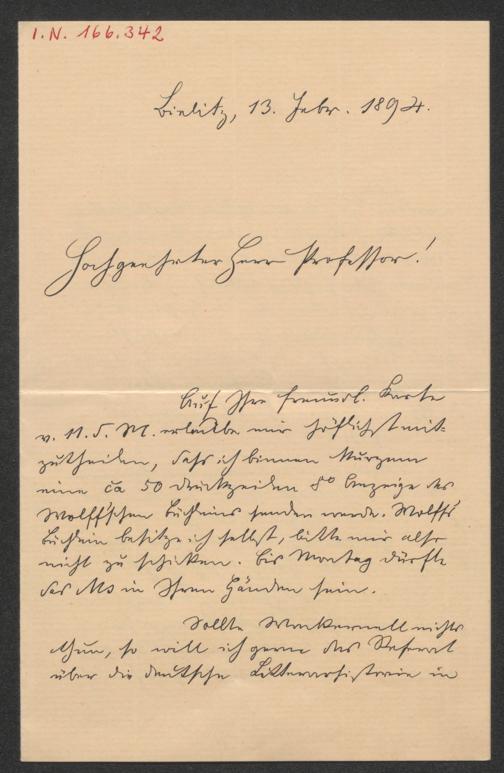 I.N. 166.342
Bielitz, 13. Febr. 1894.
Hochgeehrter Herr Professor!
Auf Ihre freundl. Karte
v. 11. d. M. erlaube mir höflichst mit-
zutheilen, dass ich binnen kurzem
eine ca 50 Druckzeilen 8° Anzeige des
Wolff'schen Büchleins senden werde. Wolffs
Büchlein besitze ich selbst, bitte mir also
nicht zu schicken. Bis Montag dürfte
das Ms in Ihren Händen sein.
Sollte Wackernell nichts
thun, so will ich gerne das Referat
über die deutsche Litterarhistorie in